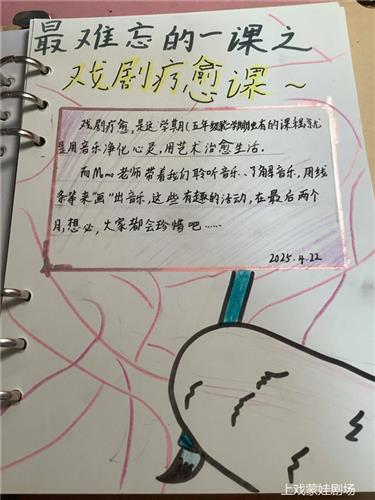 最难忘的一课之
戏剧疗愈课~
戏剧疗愈,是这学期(五年级第二学期)独有的课程,就
是用音乐净化心灵,用艺术治愈生活.
而Momo老师带着我们聆听音乐、了解音乐,用线
条等来"画"出音乐,这些有趣的活动,在最后两个
月,想必,大家都会珍惜吧……
2025.4.22
上戏蒙娃剧场